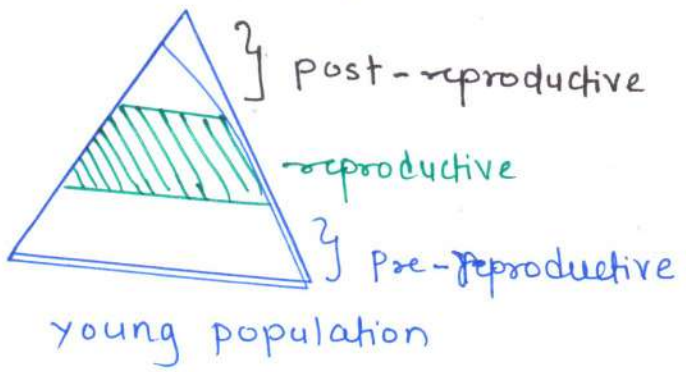 post-reproductive
reproductive
Pre-reproductive
young population